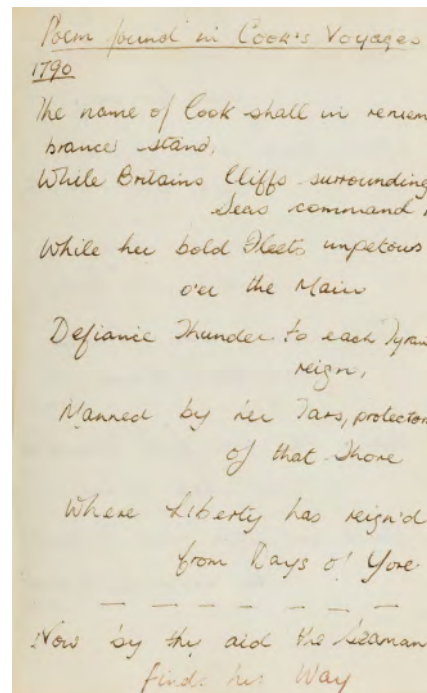 Poem found in Cook's Voyages
1790
The name of Cook shall in remem
brance stand,
While Britains Cliffs surrounding
Seas command
While her bold Fleets impetous
o'er the Main
Defiance Thunder to each Tyran
reign,
Manned by her Tars, protector
of that Shore
Where Liberty has reign'd
from Days o' Yore
Now by thy aid the Seaman
finds his Way